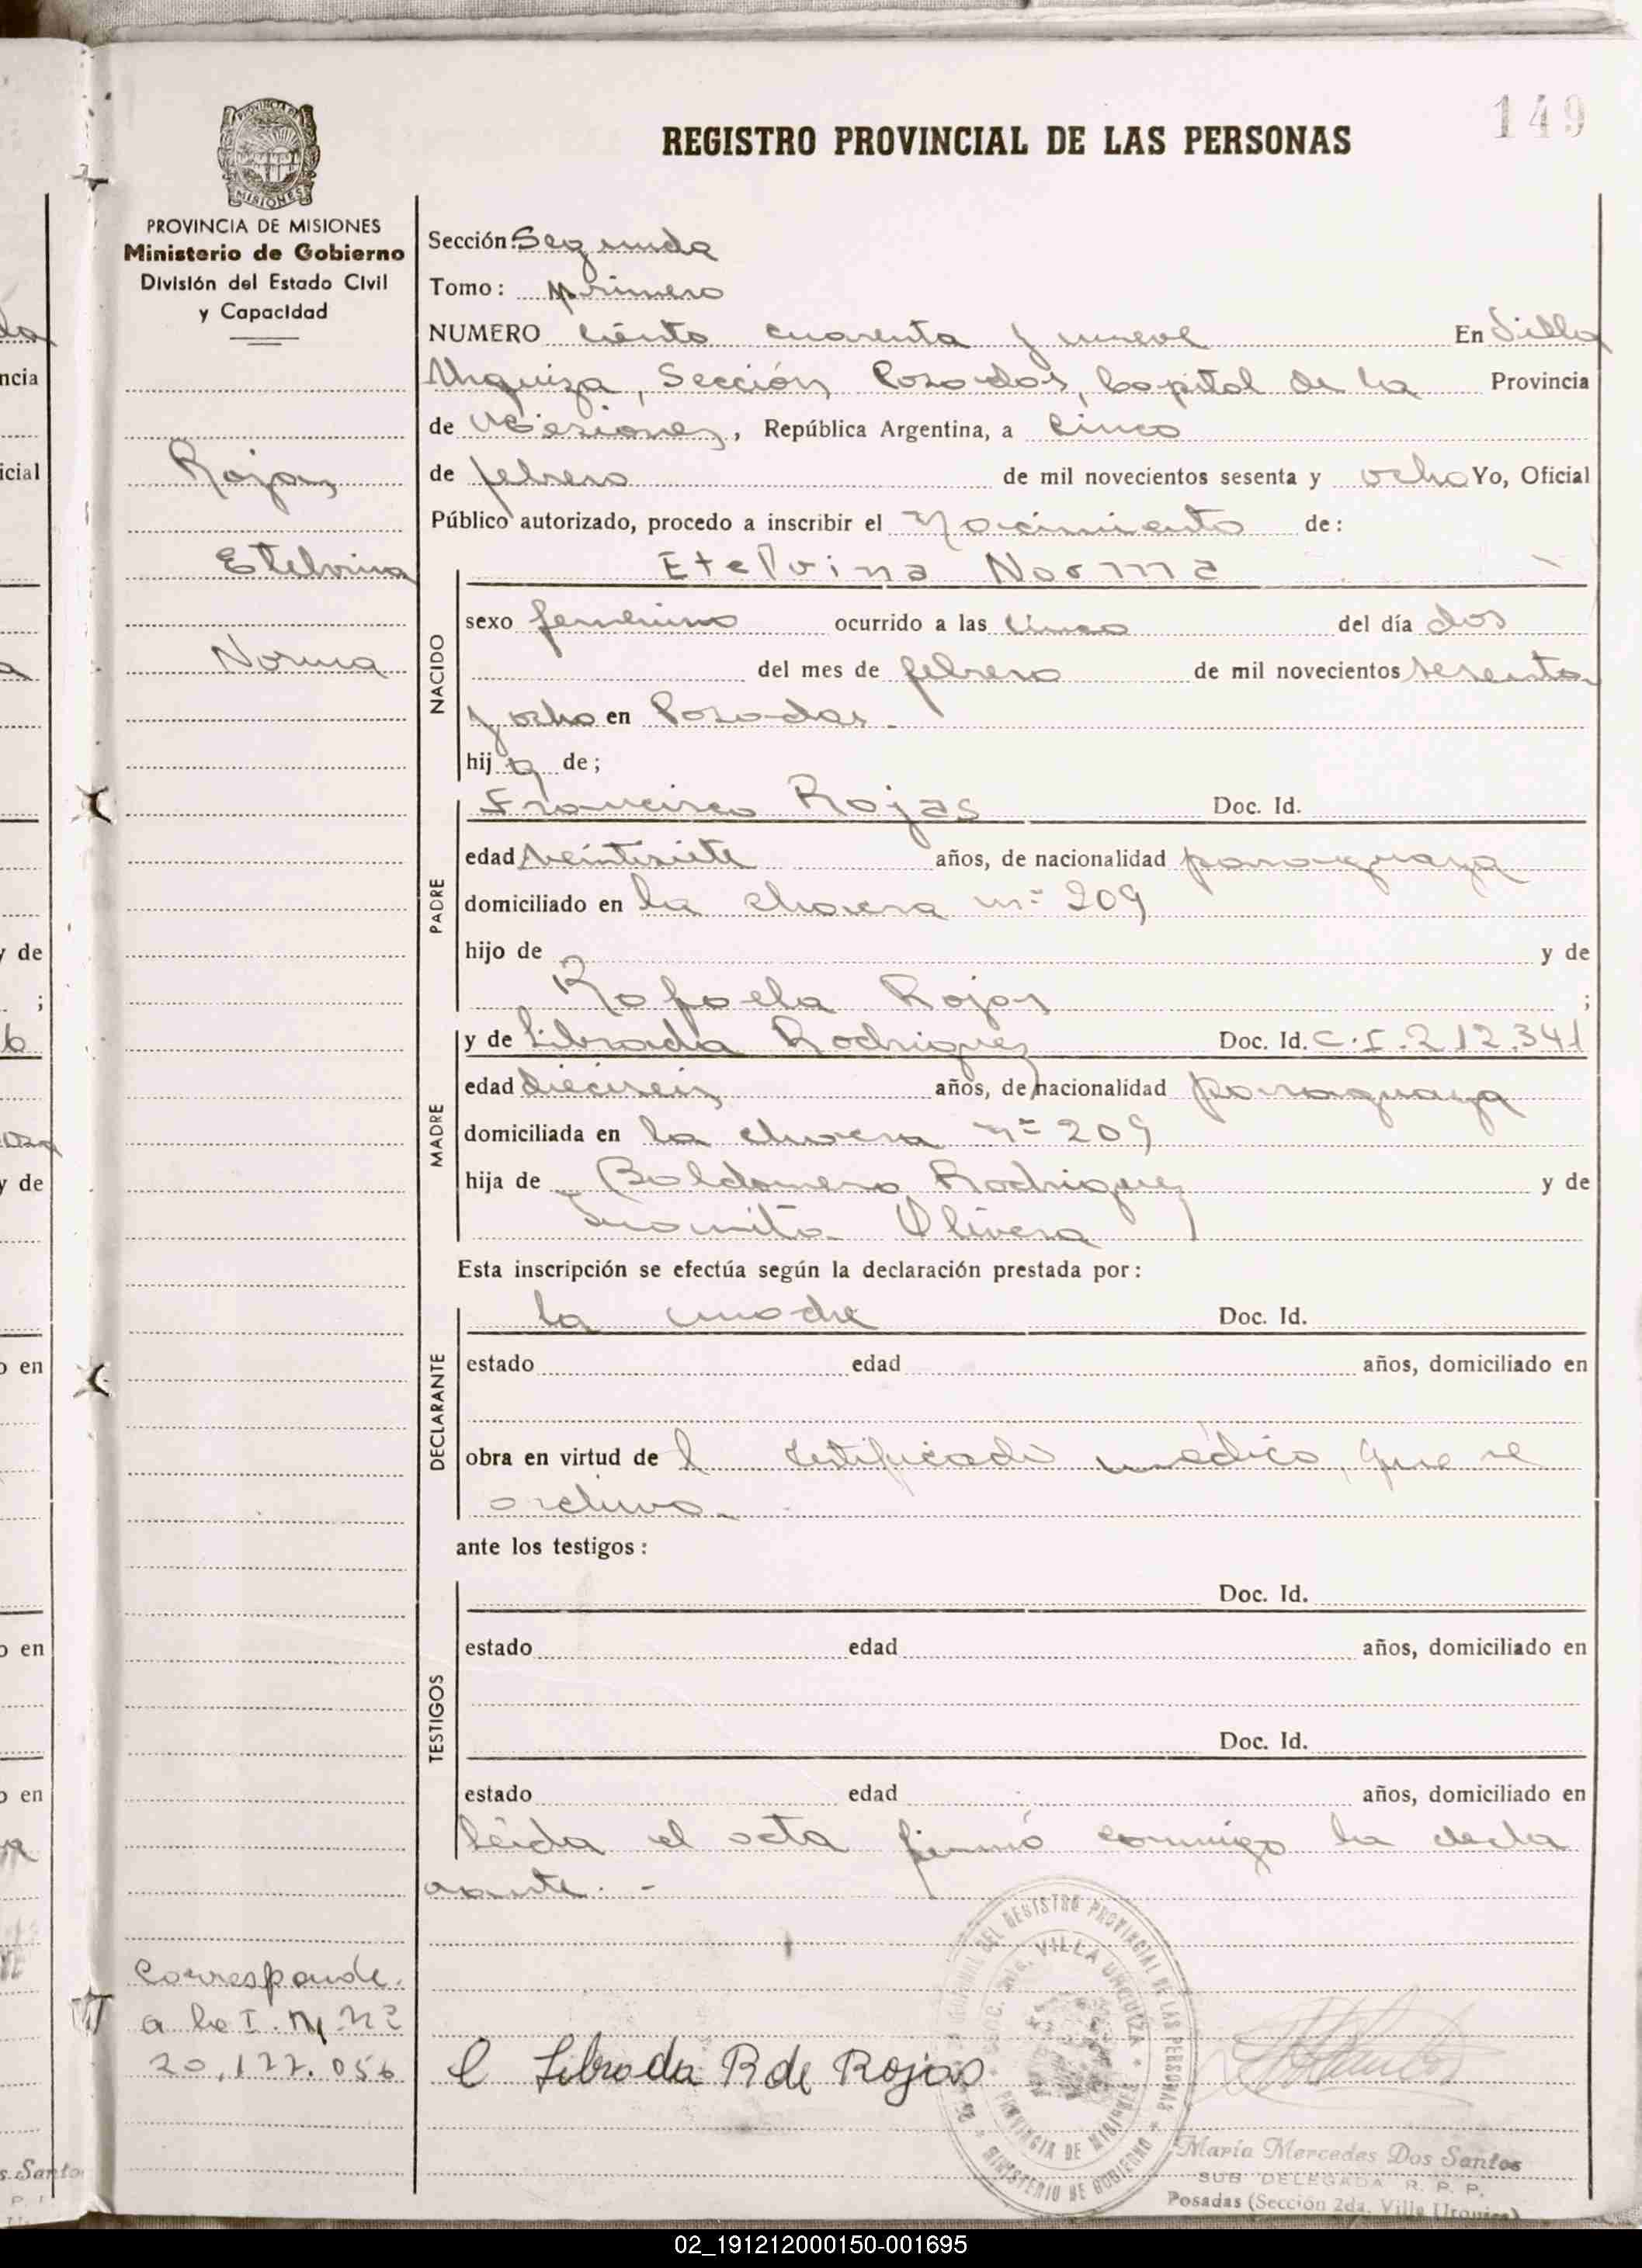 149
REGISTRO PROVINCIAL DE LAS PERSONAS
PROVINCIA DE MISIONES
Ministerio de Gobierno
División del Estado Civil
y Capacidad
Rojas
Etelvina
Norma
Sección: Segunda
Tomo: primero
NUMERO ciento cuarenta y nueve En Villa
Urquiza, Sección Posadas, Capital de la Provincia
de Misiones, República Argentina, a cinco
de febrero de mil novecientos sesenta y ocho Yo, Oficial
Público autorizado, procedo a inscribir el Nacimiento de:
NACIDO
Etelvina Norma
sexo femenino ocurrido a las cinco del día dos
del mes de febrero de mil novecientos sesenta
y ocho en Posadas.
hij a de;
PADRE
Francisco Rojas Doc. Id.
edad veintisiete años, de nacionalidad paraguaya
domiciliado en la chacra nº 209
hijo de y de
Rafaela Rojas ;
MADRE
y de Librada Rodriguez Doc. Id. C.I. 212.341
edad dieciseis años, de nacionalidad paraguaya
domiciliada en la chacra nº 209
hija de Baldomero Rodriguez y de
Juanita Olivera
Esta inscripción se efectúa según la declaración prestada por:
DECLARANTE
la madre Doc. Id.
estado edad años, domiciliado en
obra en virtud de l certificado médico, que se
archiva.
ante los testigos:
TESTIGOS
Doc. Id.
estado edad años, domiciliado en
Doc. Id.
estado edad años, domiciliado en
Leída el acta firmó conmigo la decla
rante. -
Corresponde.
a la I. M. Nº
20.177.056
Librada R de Rojas
REGISTRO PROVINCIAL DE LAS PERSONAS
VILLA URQUIZA
PROVINCIA DE MISIONES
MINISTERIO DE GOBIERNO
María Mercedes Dos Santos
SUB DELEGADA R. P. P.
Posadas (Sección 2da. Villa Urquiza)
02_191212000150-001695